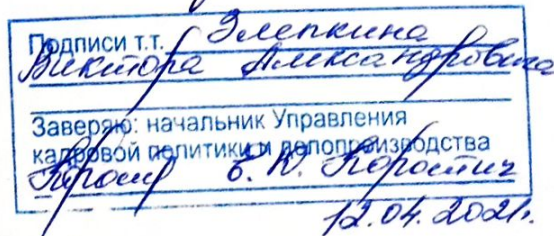 Подписи т.т. Элепкина
Виктора Александровича
Заверяю: начальник Управления
кадровой политики и делопроизводства
Е. Ю. Коростич
12.04.2021г.